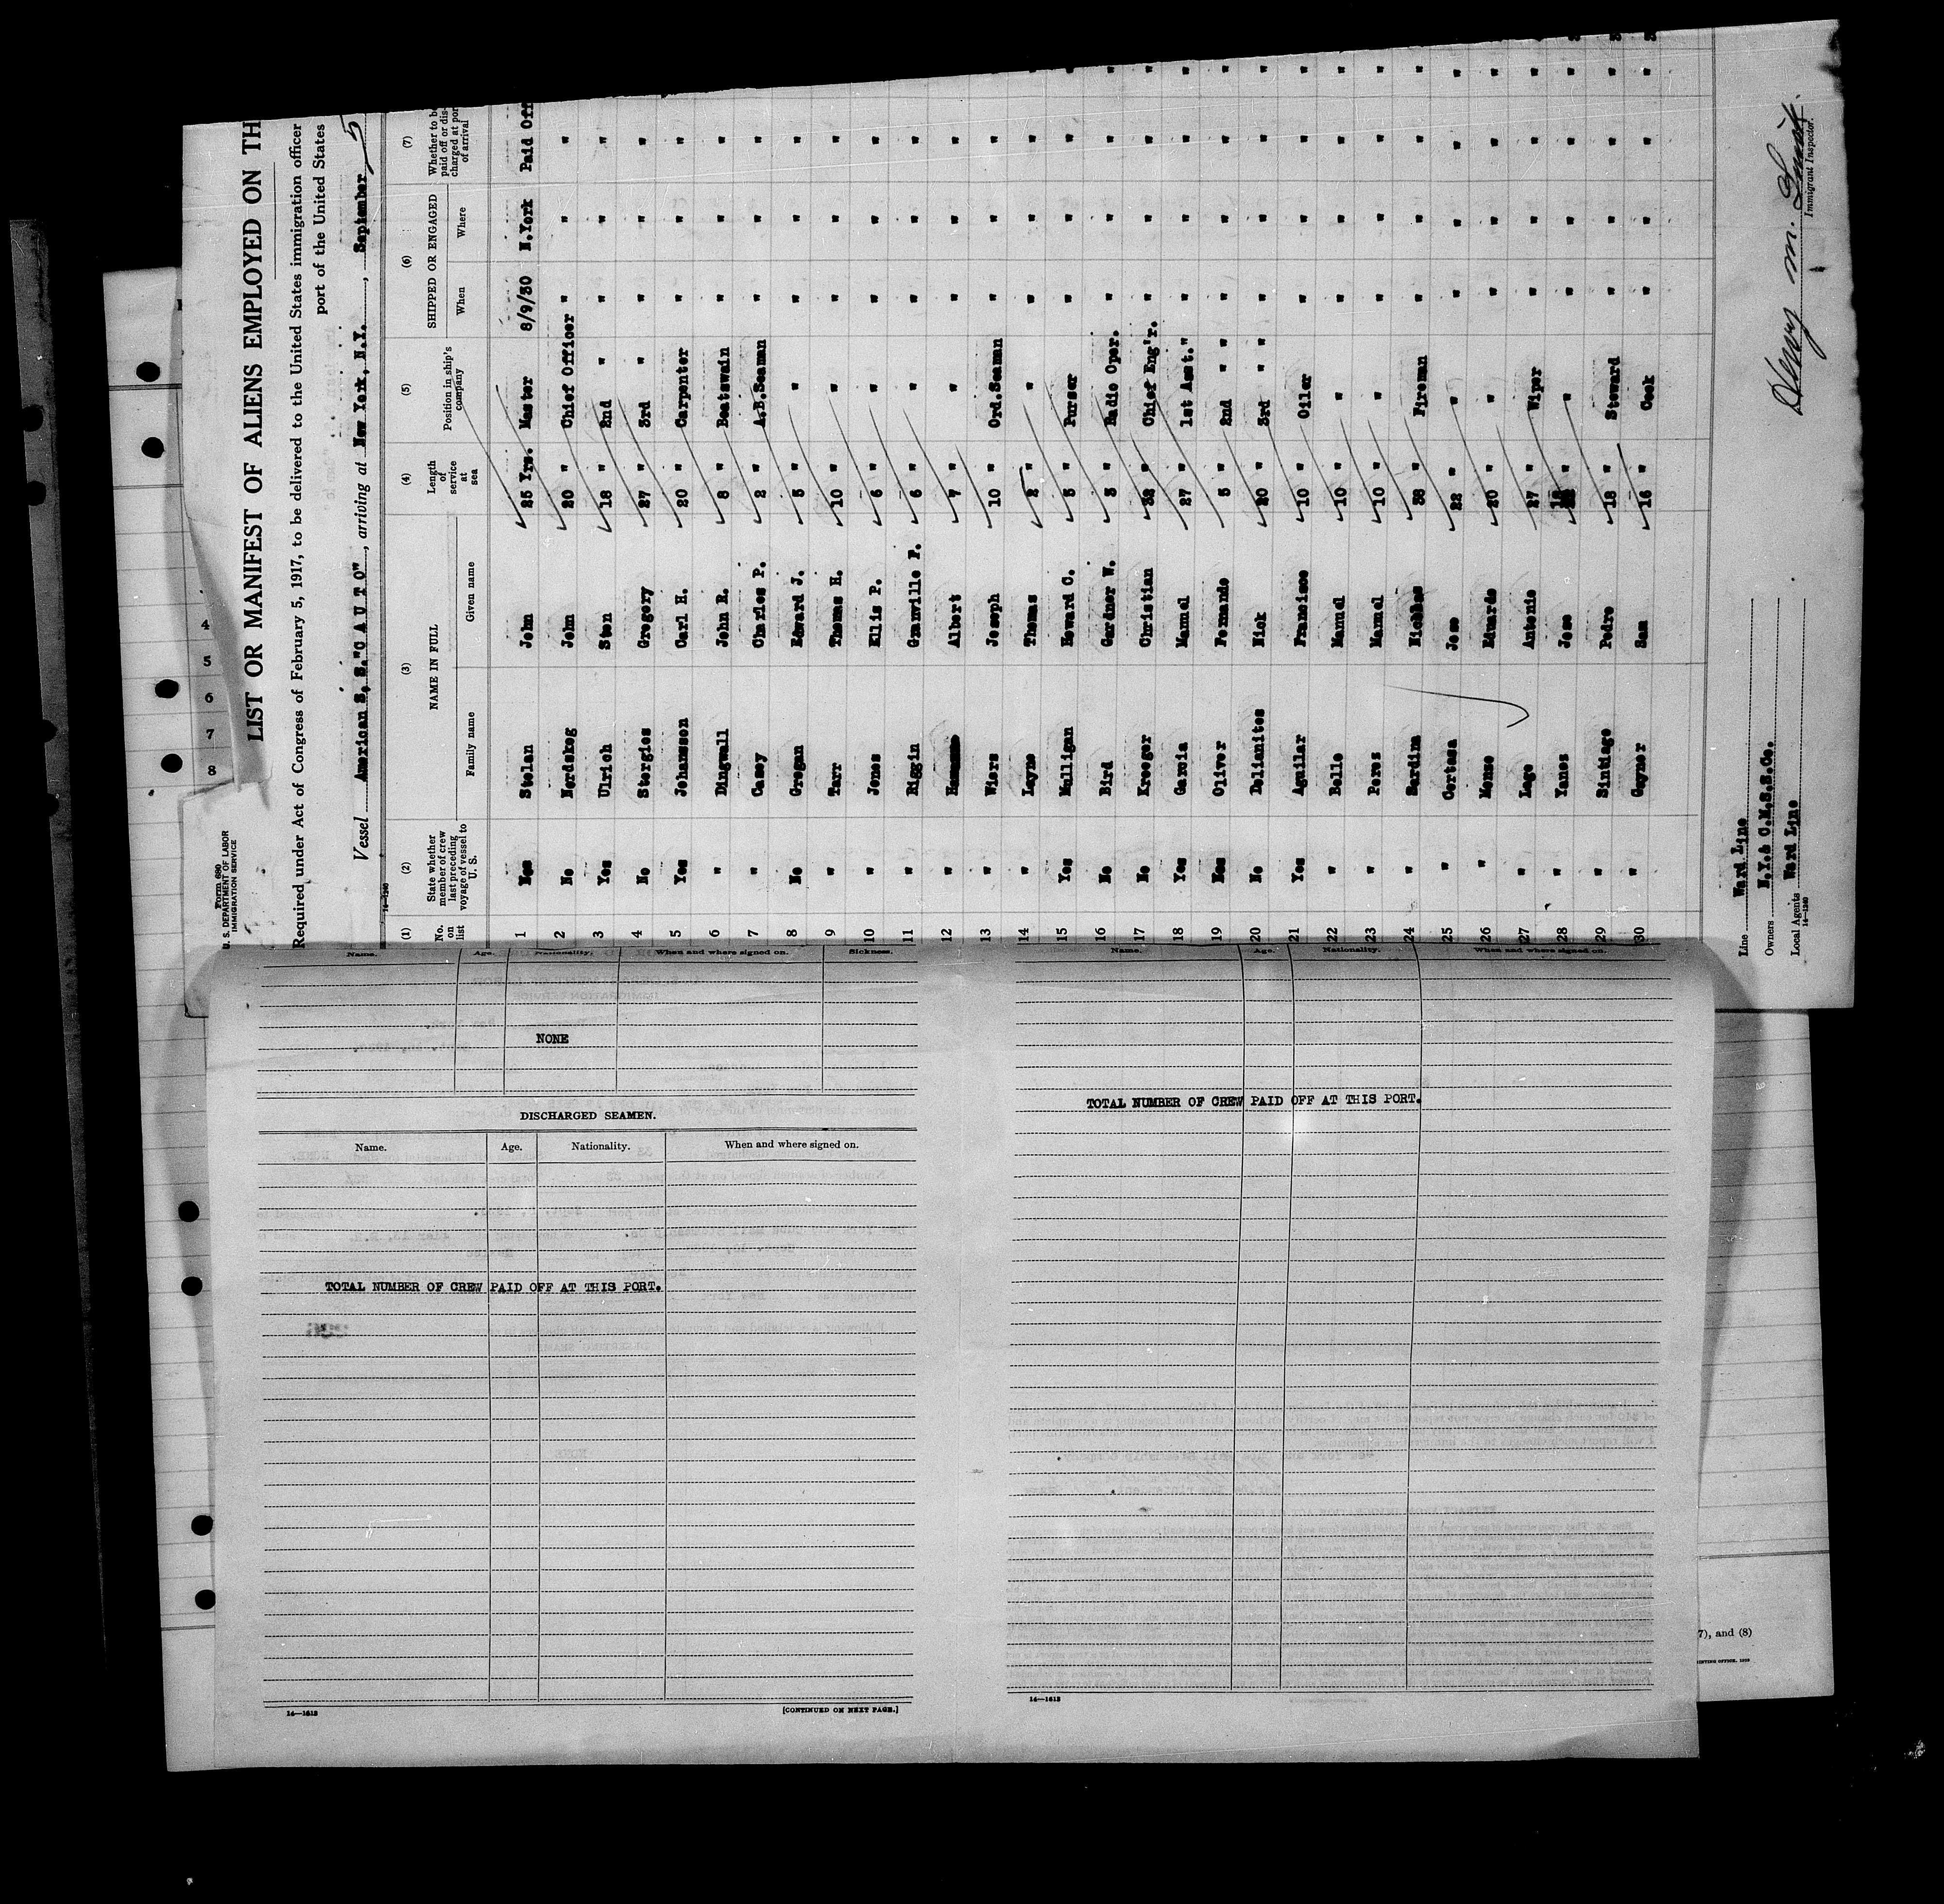 4
5
6
7
8
Form 680
U. S. DEPARTMENT OF LABOR
IMMIGRATION SERVICE
LIST OR MANIFEST OF ALIENS EMPLOYED ON TH
Required under Act of Congress of February 5, 1917, to be delivered to the United States immigration officer
port of the United States
Vessel American S. S. "C A U T O", arriving at New York, N.Y., September 5
14—1240
(1) (2) (3) (4) (5) (6) (7)
No. on list
State whether member of crew last preceding voyage of vessel to U. S.
NAME IN FULL
Family name Given name
Length of service at sea
Position in ship's company
SHIPPED OR ENGAGED
When Where
Whether to be paid off or discharged at port of arrival
1 Stolan John 25 Yrs. Master 8/9/30 N.York Paid Off
2 No Nordskog John 20 " Chief Officer " " "
3 Yes Ulrich Sten 18 " 2nd " " " "
4 No Stergios Gregory 27 " 3rd " " " "
5 Yes Johansson Carl H. 20 " Carpenter " " "
6 " Dingwall John R. 8 " Boatswain " " "
7 " Casey Charles P. 2 " A.B.Seaman " " "
8 No Grogan Edward J. 5 " " " " "
9 " Tarr Thomas H. 10 " " " " "
10 " Jones Ellis P. 6 " " " " "
11 " Riggin Granville P. 6 " " " " "
12 " Albert 7 " " " " "
13 " Wiers Joseph 10 " Ord.Seaman " " "
14 " Layne Thomas 2 " " " " "
15 Yes Mulligan Howard C. 5 " Purser " " "
16 No Bird Gardner W. 3 " Radio Oper. " " "
17 No Kroeger Christian 32 " Chief Eng'r. " " "
18 Yes Garcia Manuel 27 " 1st Asst." " " "
19 Oliver Fernando 5 " 2nd " " " " "
20 No Doliamitos Nick 20 " 3rd " " " " "
21 Yes Aguilar Francisco 10 " Oiler " " "
22 " Bello Manuel 10 " " " " "
23 " Peres Manuel 10 " " " " "
24 " Sardina 38 " Fireman " " "
25 " Cortesa Jose 22 " " " " "
26 " Monso Eduardo 20 " " " " "
27 " Lago Antonio 27 " Wiper " " "
28 " Yanes Jose " " " " "
29 " Sintiago Pedro 18 " Steward " " "
30 " Goyner Sam 16 " Cook " " "
Line Ward Line
Owners N.Y.& C.M.S.S.Co.
Local Agents Ward Line
14—1240
Henry M. Smith
Immigrant Inspector.
Name. Age. Nationality. When and where signed on. Sickness.
NONE
DISCHARGED SEAMEN.
Name. Age. Nationality. When and where signed on.
TOTAL NUMBER OF CREW PAID OFF AT THIS PORT.
14—1613
[CONTINUED ON NEXT PAGE.]
Name. Age. Nationality. When and where signed on.
TOTAL NUMBER OF CREW PAID OFF AT THIS PORT.
14—1613
7), and (8)